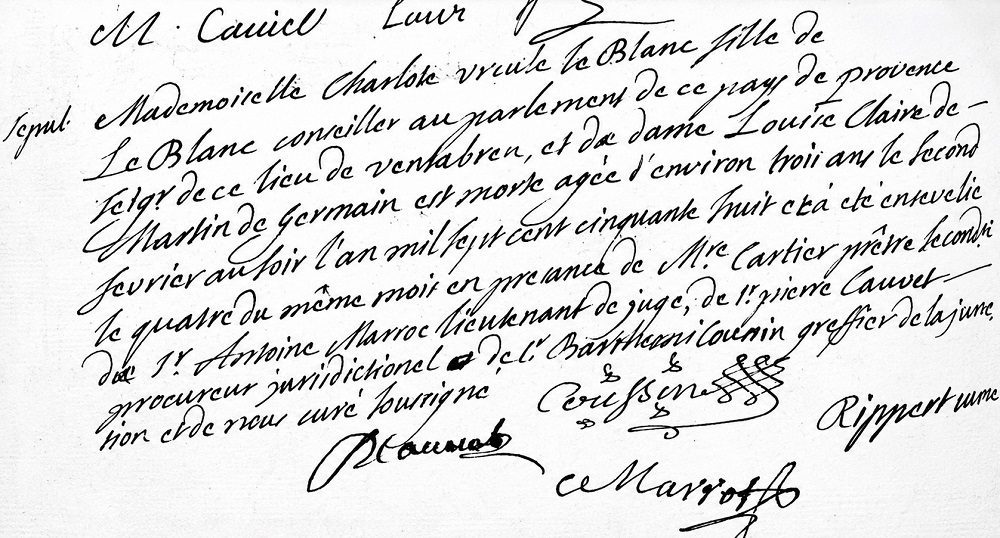 M. Cauvet
sepul. Mademoiselle Charlote ursule le Blanc fille de
Le Blanc conseiller au parlement de ce pays de provence
seigr. de ce lieu de ventabren, et de dame Louise Claire de-
Martin de Germain est morte agée d'environ trois ans le second
fevrier au soir l'an mil sept cent cinquante huit et à eté ensevelie
le quatre du même mois en presance de Mre. Cartier prêtre secondri
du Sr. Antoine Marroc lieutenant de juge, de Sr. pierre Cauvet
procureur jurisdictionel de Sr. Barthemi Cousin greffier de la juri[sdic]
tion et de nous curé soussigné
Cousin
Rippert curé
P Cauvet
Marrot